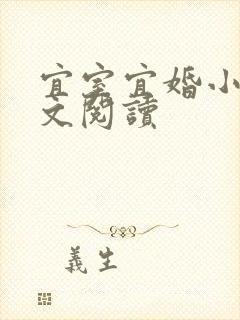 宜室宜婚小
文閱讀
義生